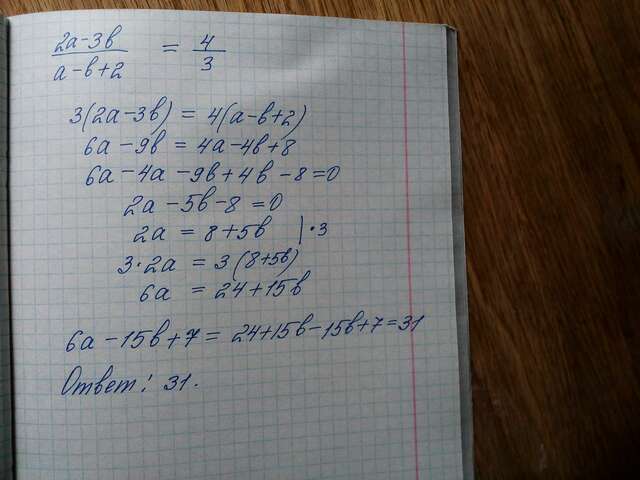 2a-3b/a-b+2 = 4/3
3(2a-3b) = 4(a-b+2)
6a-9b = 4a-4b+8
6a-4a-9b+4b-8=0
2a-5b-8=0
2a = 8+5b |·3
3·2a = 3(8+5b)
6a = 24+15b
6a-15b+7 = 24+15b-15b+7=31
Ответ: 31.